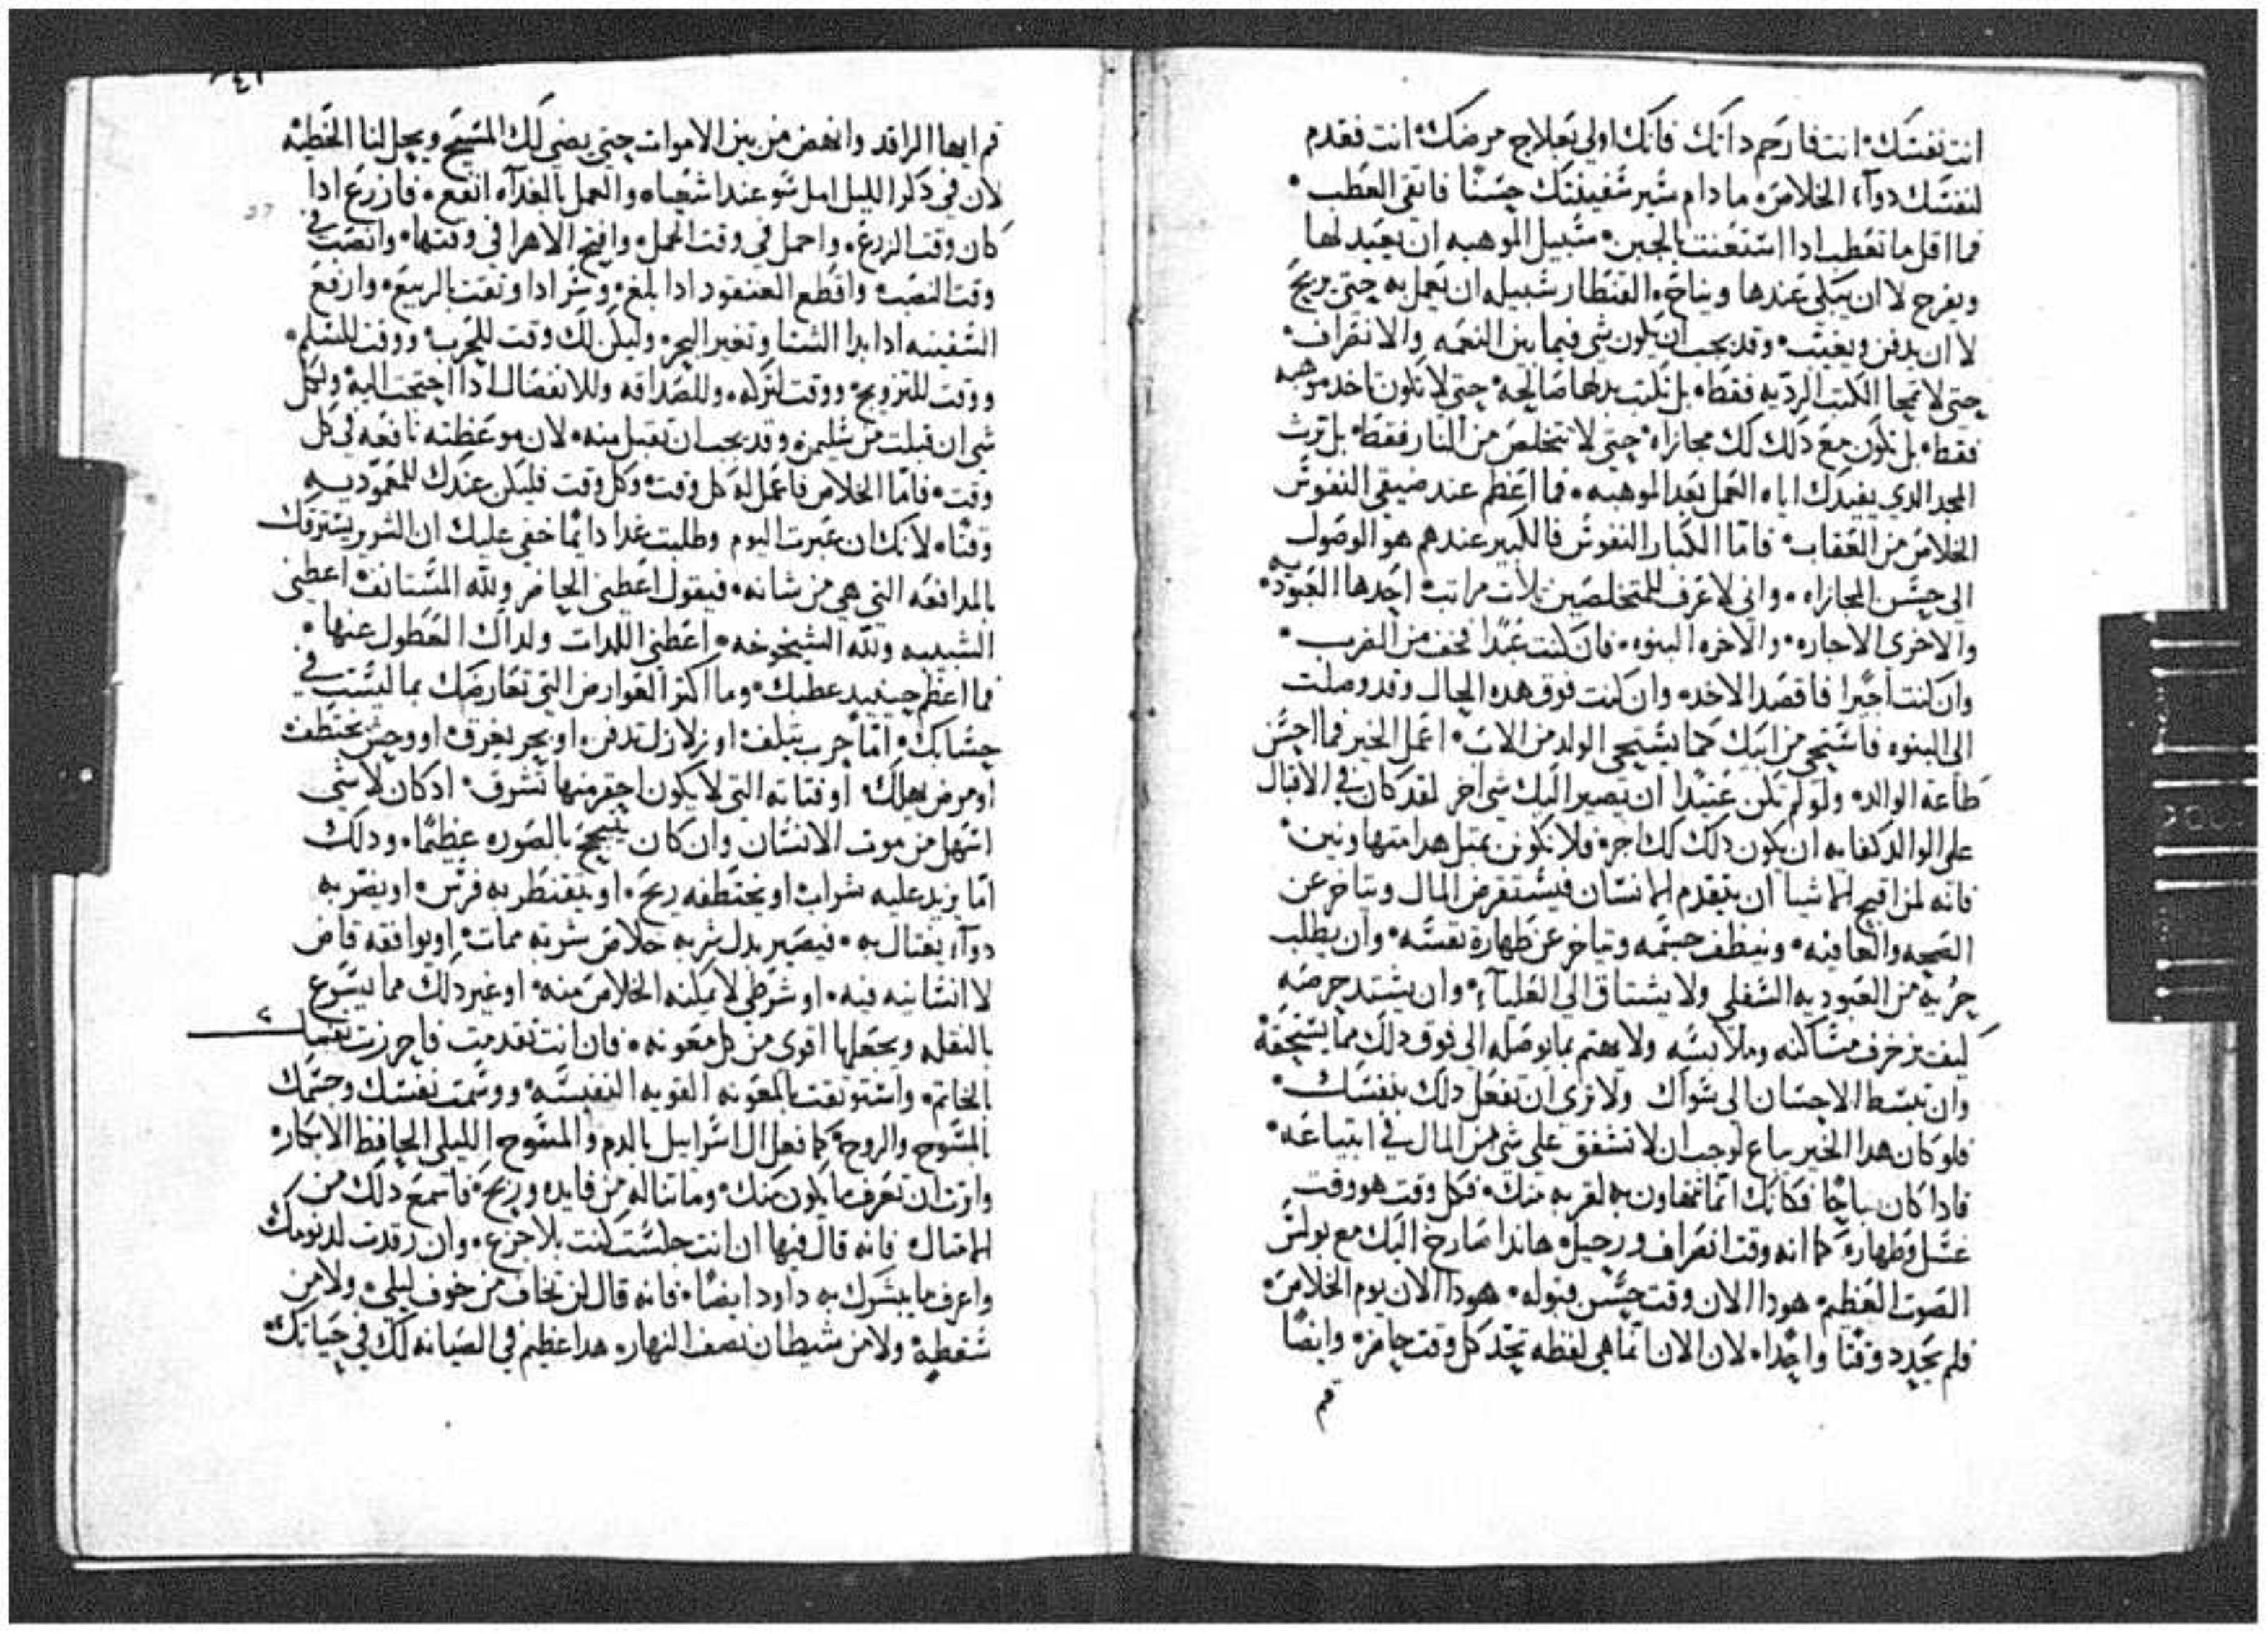 انت نفسك· انت فارحم داتك فانك اولي بعلاج مرضك· انت فقدم
لنفسك دواء الخلاص· ما دام سير سفينتك حسنا فاتقي العطب·
فما اقل ما تعطب ادا استعنت بالجبن· سبيل الموهبه ان يعيد لها
ويفرح لا ان يبكي عندها ويناح· القنطار سبيله ان يعمل به حتي يربح
لا ان يدفن ويغيب· وقد يجب ان يكون شي فيما بين النعمه والانصراف·
حتي لا تمحا الكتب الرديه فقط· بل تكتب بدلها صالحه· حتي لا تكون تاخد موهبه
فقط· بل تكون مع دلك لك مجازاه· حتي لا تتخلص من النار فقط· بل ترث
المجد الدي يفيدك اياه العمل بعد الموهبه· فما اعظم عند ضيقي النفوس
الخلاص من العقاب· فاما الكبار النفوس فالكبير عندهم هو الوصول
الي حسن المجازاه· واني لاعرف للمتخلصين تلات مراتب· احدها العبوديه·
والاخري الاجاره· والاخره البنوه· فان كنت عبدا فخف من الضرب·
وان كنت اجيرا فاقصد الاخد· وان كنت فوق هده الحال وقد وصلت
الي البنوه فاستحي من ابيك كما يستحي الولد من الاب· اعمل الخير فما احسن
طاعة الوالد· ولو لم تكن عتيدا ان تصير اليك شي اخر لقد كان في الاقبال
علي الوالد كفايه ان يكون دلك لك اجر· فلا نكونن بمتل هدا متهاونين·
فانه لمن اقبح الاشيا ان يتقدم الانسان فيستقرض المال ويتاخر عن
الصحه والعافيه· وينظف جسمه ويتاخر عن طهارة نفسه· وان يطلب
حرية من العبوديه السفلي ولا يشتاق الي العلياء· وان يشتد حرصه
كيف يزخرف مساكنه وملابسه ولا يهتم بما يوصله الي فوق دلك مما يستحقه
وان تبسط الاحسان الي سواك ولا تري ان تفعل دلك بنفسك·
فلو كان هدا الخير يباع لوجب ان لا تشفق علي شي من المال في ابتياعه·
فادا كان مباحا فكانك انما تتهاون به لقربه منك· فكل وقت هو وقت
غسل وطهاره· كما انه وقت انصراف ورحيل· هاندا صارخ اليك مع بولس
الصوت العظيم· هودا الان وقت حسن قبوله· هودا الان يوم الخلاص·
فلم يحدد وقتا واحدا· لان الان انما هي لفظه تحد كل وقت حاضر· وايضا
قم
قم ايها الراقد وانهض من بين الاموات حتي يضي لك المسيح ويحل لنا الخطيه
لان في دكر الليل امل سو عند اشعياه والعمل بالغداه انفع· فازرع ادا
كان وقت الزرع· واحمل في وقت الحمل· وافتح الاهرا في وقتها· وانصب في
وقت النصب· واقطع العنقود ادا بلغ· وسر ادا وتقت بالربيع· وارفع
السفينه ادا بدا الشتا وتغير البحر· وليكن لك وقت للحرب· ووقت للسلم·
ووقت للتزويج· ووقت لتركه· وللصداقه وللانفصال ادا احتجت اليه· ولكل
شي ان قبلت من سليمن· وقد يجب ان تقبل منه· لان موعظته نافعه في كل
وقت· فاما الخلاص فاعمل له كل وقت· وكل وقت فليكن عندك للمعموديه
وقتا· لانك ان عبرت اليوم وطلبت غدا دايما خفي عليك ان الشرير يسترقك
بالمدافعه التي هي من شانه· فيقول اعطني الحاضر ولله المستانف· اعطني
الشبيبه ولله الشيخوخه· اعطني اللدات ولداك العطول عنها·
فما اعظم حينيد عطبك· وما اكتر العوارض التي تعارضك بما ليست في
حسابك· اما حرب يتلف· او زلازل تدفن· او بحر يغرق· او وحش يختطف·
او مرض يهلك· او فتاته التي لا يكون احقر منها تشرق· اد كان لا شي
اسهل من موت الانسان وان كان بالصوره عظيما· ودلك
اما يزيد عليه شراب· او يختطفه ريح· او يتقنطر به فرس· او يضر به
دواء يغتال به· فيصير بدل شربه خلاص شربه ممات· او يوافقه قاض
لا انسانيه فيه· او شرطي لا يمكنه الخلاص منه· او غير دلك مما يسرع
بالنقله ويجعلها اقوي من كل معونه· فان انت تقدمت فاحرزت نفسك
الخاتم· واستوتقت بالمعونه القويه النفيسه· ووسمت نفسك وجسمك
بالمسوح والروح· كما فعل ال اسراييل بالدم والمسوح الليلي الحافظ الابكار·
وارت ان تعرف ما يكون منك· وما تناله من فايده وربح· فاسمع دلك من
الامتال· فانه قال فيها ان انت جلست كنت بلا جزع· وان رقدت لد نومك
واعرف ما يبشرك به داود ايضا· فانه قال لن تخاف من خوف ليلي· ولا من
سقطه· ولا من شيطان نصف النهار· هدا عظيم في الصيانه لك في حياتك·